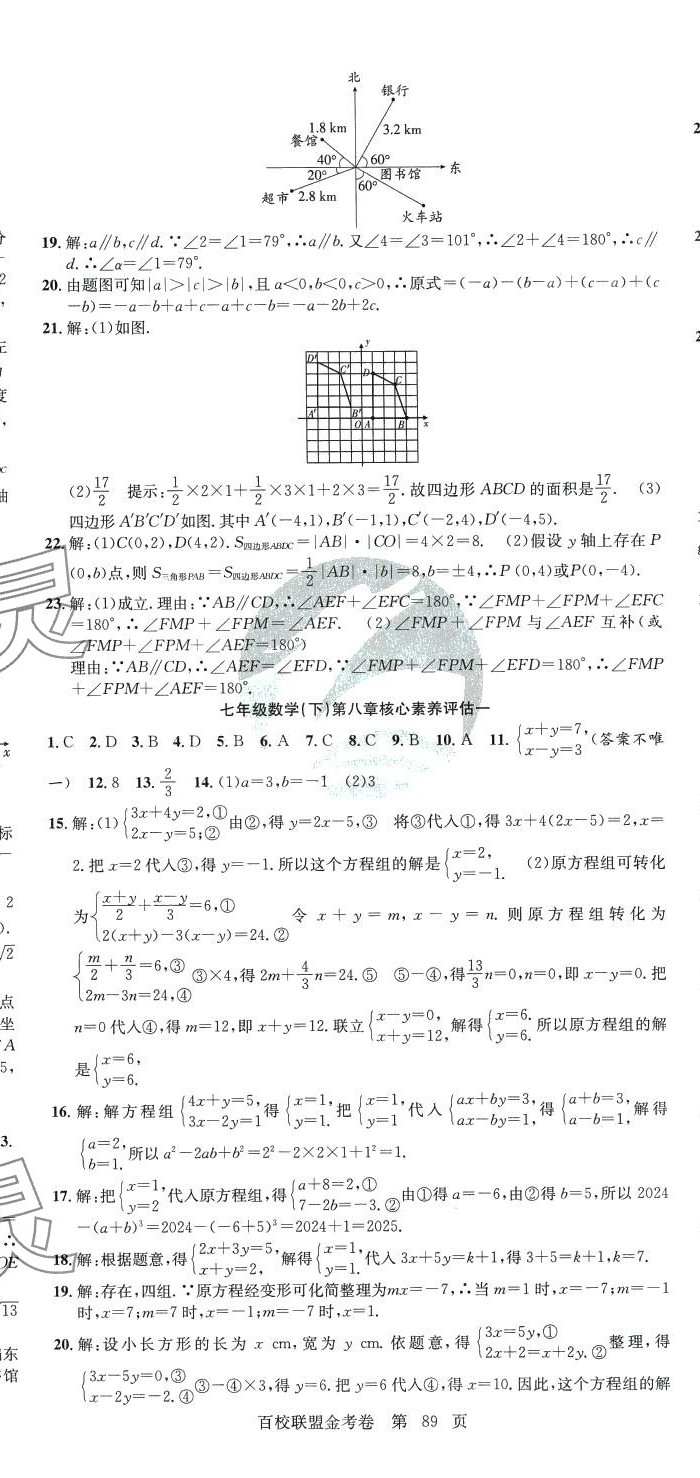 北
银行
1.8 km
3.2 km
餐馆
40° 60°
东
20°
图书馆
60°
超市 2.8 km
火车站
19. 解:a∥b,c∥d.∵∠2=∠1=79°,∴a∥b.又∠4=∠3=101°,∴∠2+∠4=180°,∴c∥
d.∴∠α=∠1=79°.
20. 由题图可知|a|>|c|>|b|,且 a<0,b<0,c>0,∴原式=(-a)-(b-a)+(c-a)+(c
-b)=-a-b+a+c-a+c-b=-a-2b+2c.
21. 解:(1)如图.
y
D′ C′ D C
A′ B′ O A B x
(2)17/2 提示:1/2×2×1+1/2×3×1+2×3=17/2.故四边形 ABCD 的面积是17/2. (3)
四边形 A′B′C′D′如图.其中 A′(-4,1),B′(-1,1),C′(-2,4),D′(-4,5).
22. 解:(1)C(0,2),D(4,2).S四边形ABDC=|AB|·|CO|=4×2=8. (2)假设 y 轴上存在 P
(0,b)点,则 S三角形PAB=S四边形ABDC=1/2|AB|·|b|=8,b=±4,∴P(0,4)或P(0,-4).
23. 解:(1)成立.理由:∵AB∥CD,∴∠AEF+∠EFC=180°,∵∠FMP+∠FPM+∠EFC
=180°,∴∠FMP+∠FPM=∠AEF. (2)∠FMP+∠FPM 与∠AEF 互补(或
∠FMP+∠FPM+∠AEF=180°)
理由:∵AB∥CD,∴∠AEF=∠EFD,∵∠FMP+∠FPM+∠EFD=180°,∴∠FMP
+∠FPM+∠AEF=180°.
七年级数学(下)第八章核心素养评估一
1. C 2. D 3. B 4. D 5. B 6. A 7. C 8. C 9. B 10. A 11. {x+y=7, x-y=3 (答案不唯
一) 12. 8 13. 2/3 14. (1)a=3,b=-1 (2)3
15. 解:(1){3x+4y=2,① 2x-y=5;② 由②,得 y=2x-5,③ 将③代入①,得 3x+4(2x-5)=2,x=
2.把 x=2 代入③,得 y=-1.所以这个方程组的解是{x=2, y=-1. (2)原方程组可转化
为{(x+y)/2+(x-y)/3=6,① 2(x+y)-3(x-y)=24.② 令 x+y=m,x-y=n.则原方程组转化为
{m/2+n/3=6,③ 2m-3n=24,④ ③×4,得 2m+4/3n=24.⑤ ⑤-④,得13/3n=0,n=0,即 x-y=0.把
n=0 代入④,得 m=12,即 x+y=12.联立{x-y=0, x+y=12, 解得{x=6. y=6. 所以原方程组的解
是{x=6, y=6.
16. 解:解方程组{4x+y=5, 3x-2y=1 得{x=1, y=1. 把{x=1, y=1 代入{ax+by=3, ax-by=1, 得{a+b=3, a-b=1, 解得
{a=2, b=1. 所以 a²-2ab+b²=2²-2×2×1+1²=1.
17. 解:把{x=1, y=2 代入原方程组,得{a+8=2,① 7-2b=-3.② 由①得 a=-6,由②得 b=5,所以 2024
-(a+b)³=2024-(-6+5)³=2024+1=2025.
18. 解:根据题意,得{2x+3y=5, x+y=2, 解得{x=1, y=1. 代入 3x+5y=k+1,得 3+5=k+1,k=7.
19. 解:存在,四组.∵原方程经变形可化简整理为mx=-7,∴当 m=1 时,x=-7;m=-1
时,x=7;m=7 时,x=-1;m=-7 时,x=1.
20. 解:设小长方形的长为 x cm,宽为 y cm.依题意,得{3x=5y,① 2x+2=x+2y.② 整理,得
{3x-5y=0,③ x-2y=-2.④ ③-④×3,得 y=6.把 y=6 代入④,得 x=10.因此,这个方程组的解
百校联盟金考卷 第 89 页